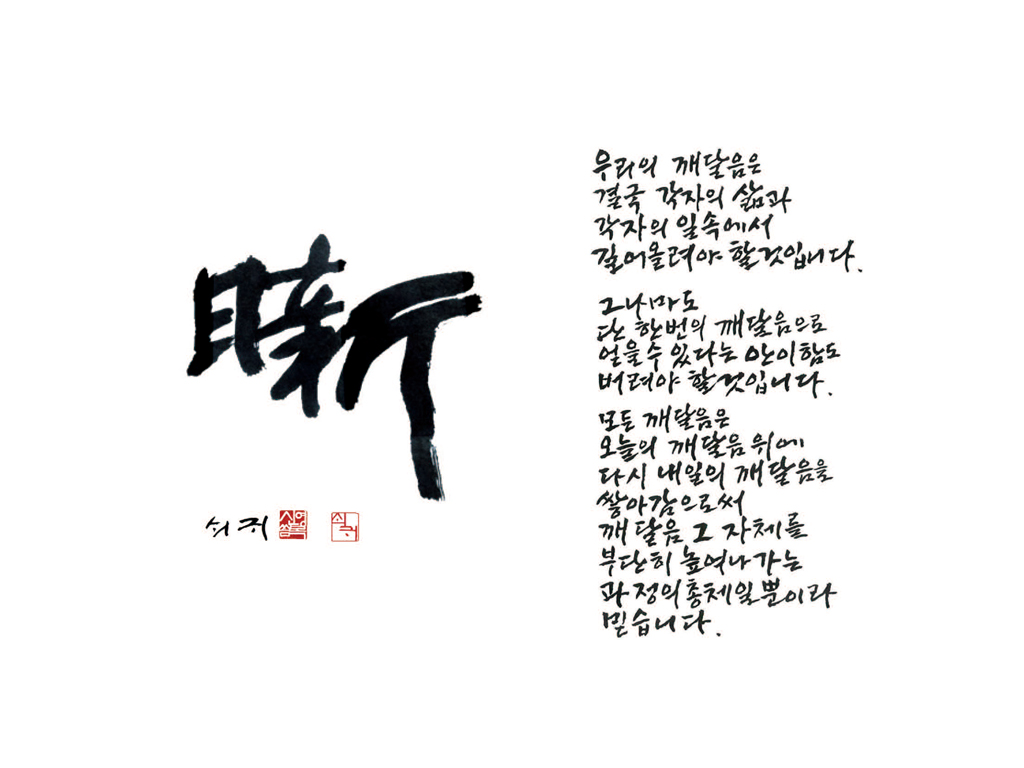 쇠귀
쇠귀
우리의 깨달음은
결국 각자의 삶과
각자의 일속에서
길어올려야 할것입니다.
그나마도
단 한번의 깨달음으로
얻을수 있다는 안이함도
버려야 할것입니다.
모든 깨달음은
오늘의 깨달음 위에
다시 내일의 깨달음을
쌓아감으로써
깨달음 그 자체를
부단히 높여나가는
과정의 총체일뿐이라
믿습니다.